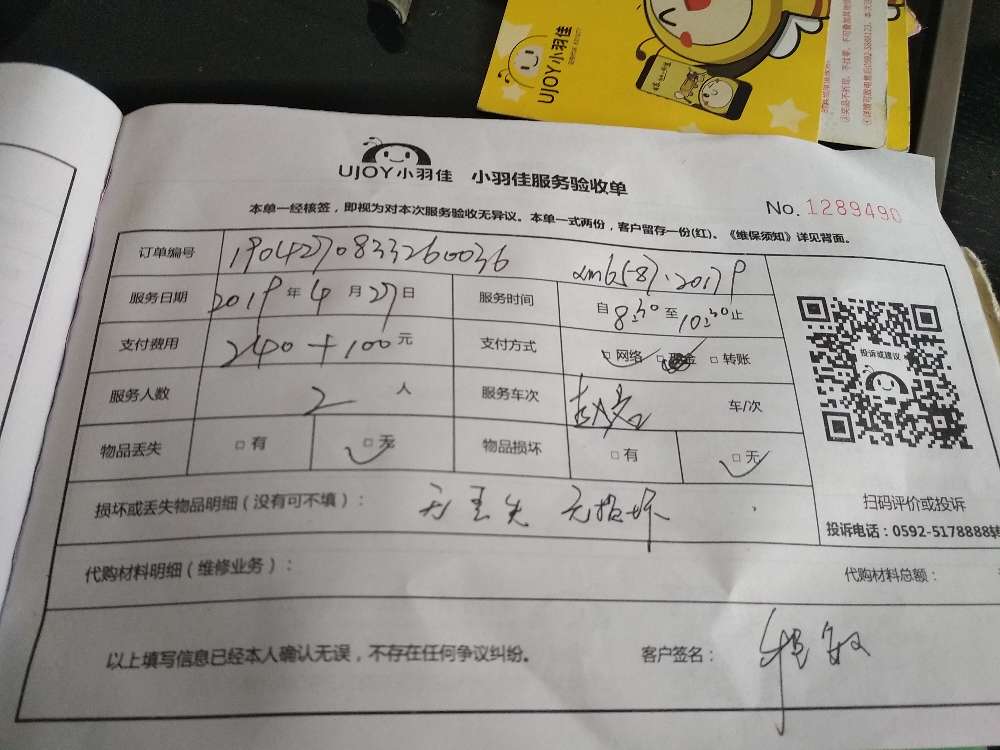 UJOY小羽佳
UJOY小羽佳 小羽佳服务验收单
No. 1289490
本单一经核签，即视为对本次服务验收无异议。本单一式两份，客户留存一份(红)。《维保须知》详见背面。
订单编号 190427083326003​6
服务日期 2019年4月27日 服务时间 自8:30至10:30止
支付费用 240+100元 支付方式 □网络 □现金 □转账
服务人数 2人 服务车次 车/次
物品丢失 □有 □无 物品损坏 □有 □无
投诉或建议
损坏或丢失物品明细（没有可不填）： 无丢失 无损坏
扫码评价或投诉
投诉电话：0592-5178888转
代购材料明细（维修业务）： 代购材料总额：
以上填写信息已经本人确认无误，不存在任何争议纠纷。 客户签名：